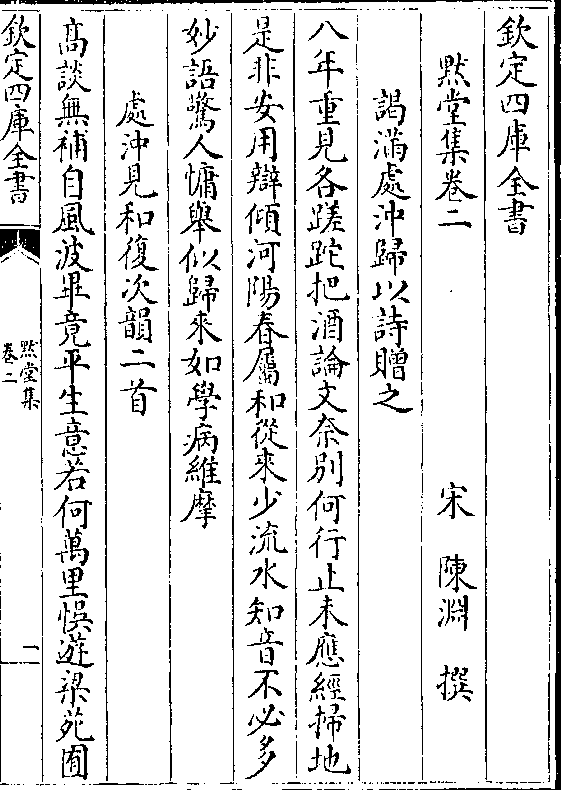 欽定四庫全書
默堂集卷二
宋 陳淵 撰
謁滿處沖歸以詩贈之
八年重見各蹉跎把酒論文奈别何行止未應經掃地
是非安用辯傾河陽春屬和從来少流水知音不必多
妙語驚人慵舉似歸来如學病維摩
處沖見和復次韻二首
髙談無補自風波畢竟平生意若何萬里悞遊梁苑囿
欽定四庫全書
默堂集
卷二
一